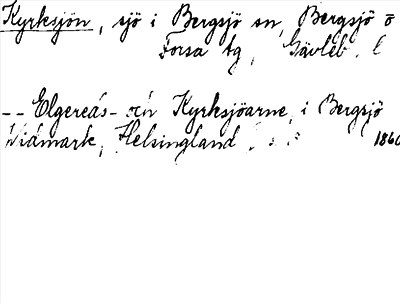 Kyrksjön, sjö i Bergsjö sn, Bergsjö o
Forsa tg, Gävleb. l
-- Elgereås- och Kyrksjöarne, i Bergsjö
Widmark, Helsingland 1860